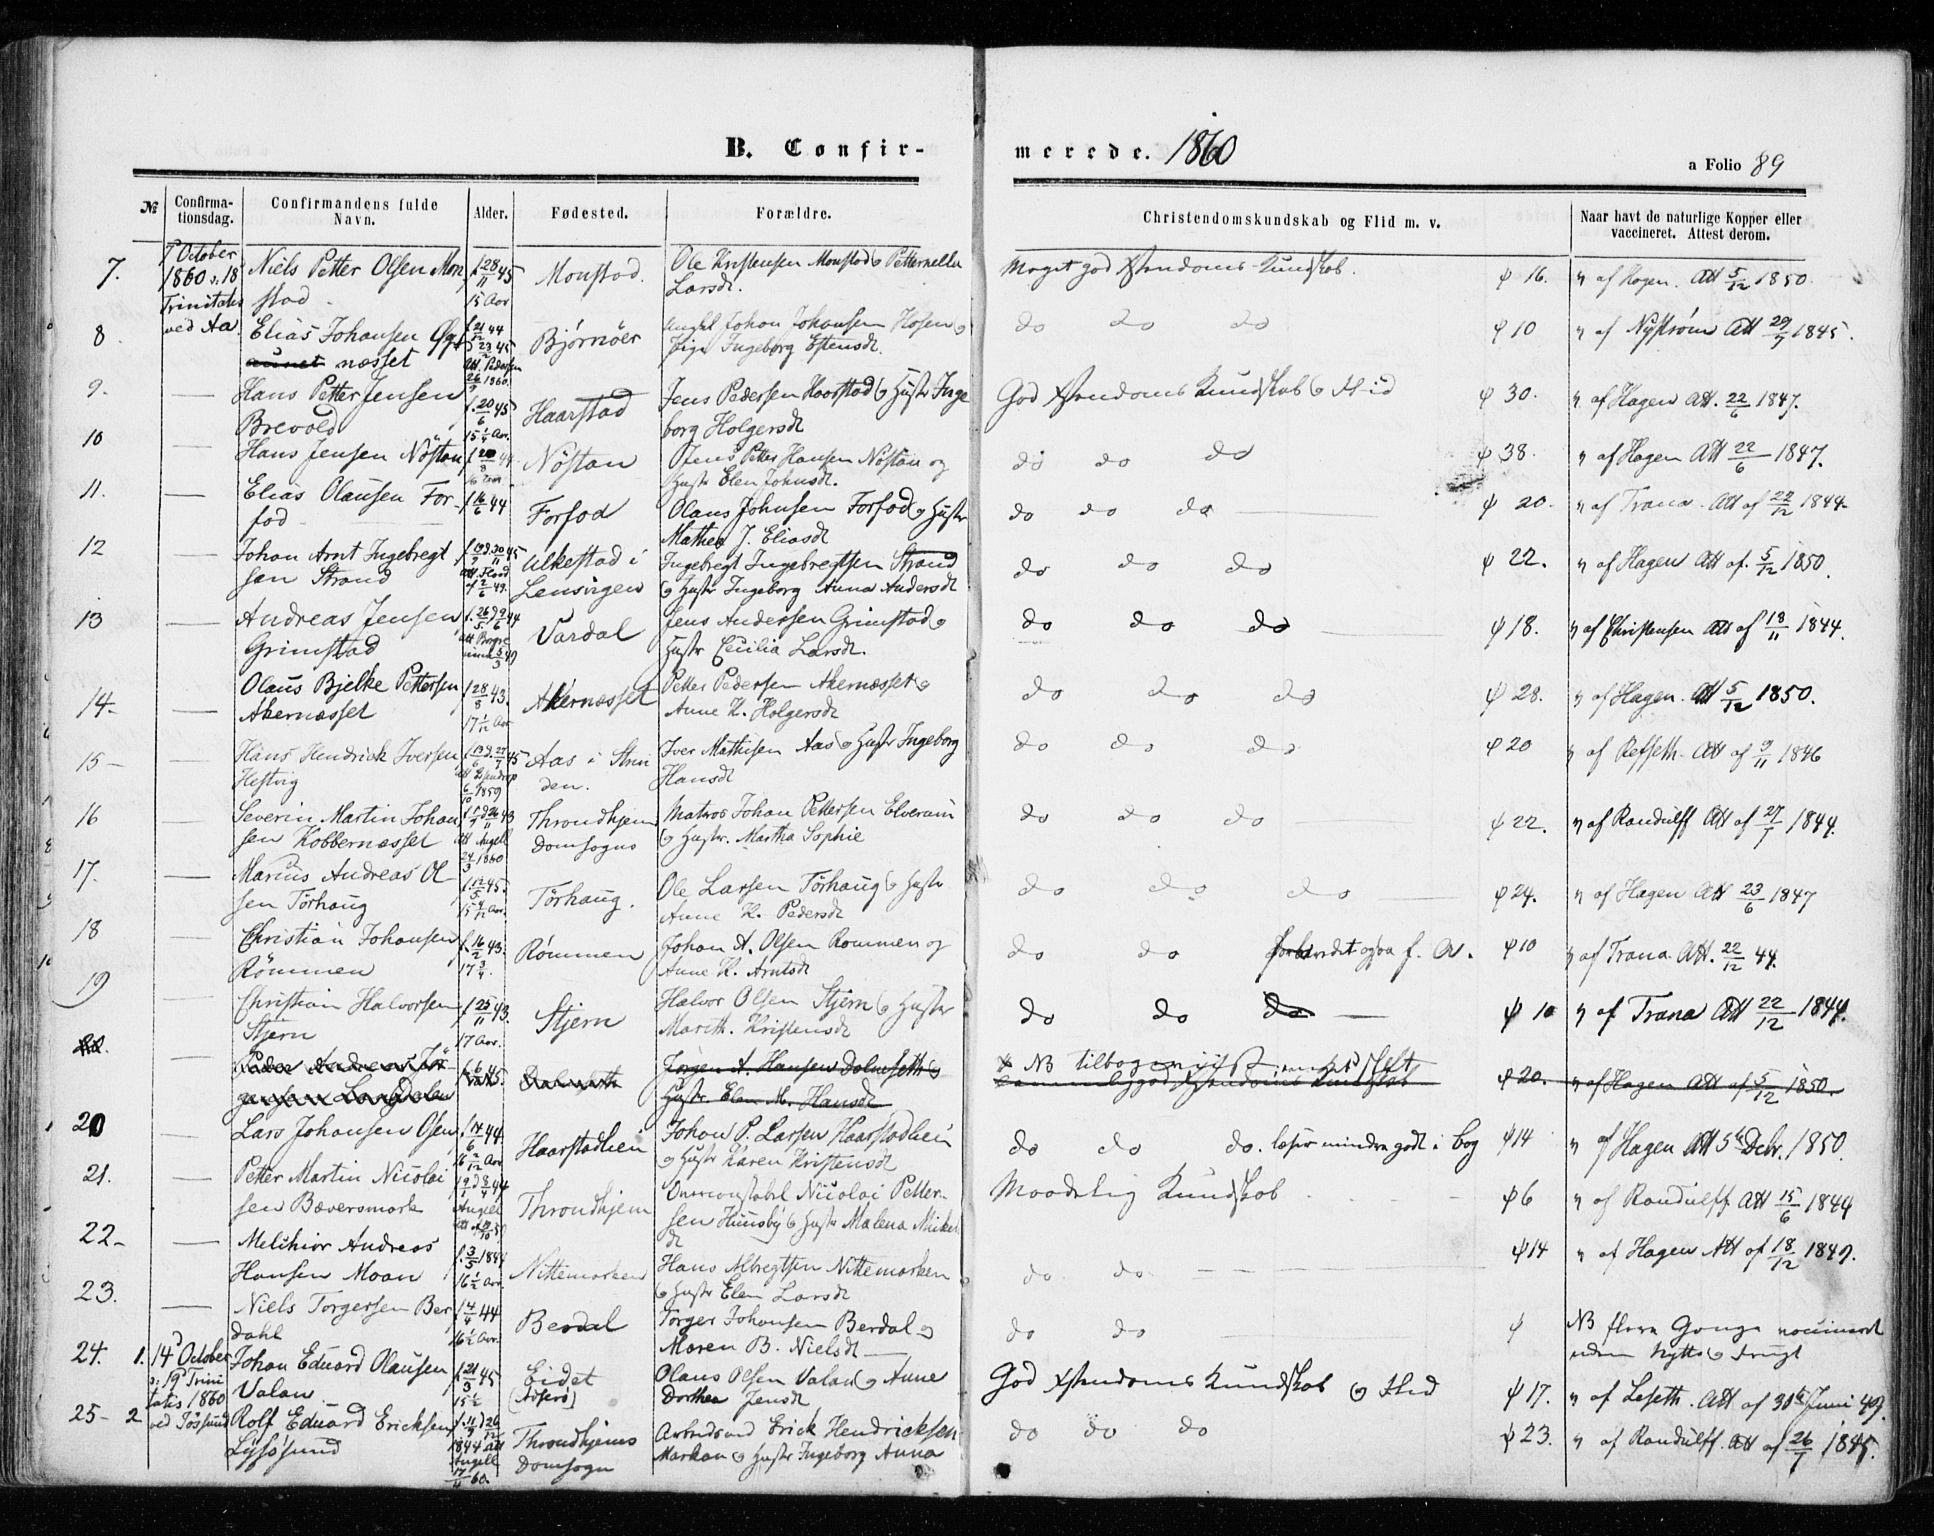 B. Confirmerede. 1860
a Folio 89
№ Confirmationsdag. Confirmandens fulde Navn. Alder. Fødested. Forældre. Christendomskundskab og Flid m. v. Naar havt de naturlige Kopper eller vaccineret. Attest derom.
7. October 1860 18 Trinitatis ved Aa Niels Petter Olsen Monstad f. 28/11 45 15 Aar Monstad Ole Kristensen Monstad Petternella Larsdt. Meget god Kundskab. 16. af Hagen. Att 5/12 1850.
8 Elias Johansen næsset f. 21/12 44 d 23/2 45 Att. Pedersen 26/9 1860. Bjørnöer Johan Johansen Hosen Pige Ingeborg Estensdt. do do do 10 af Nystrøm Att 29/7 1845.
9. Hans Petter Jensen Brevold f. 20/6 45 15 1/4 Aar. Haarstad Jens Pedersen Haarstad Hustr Ingeborg Holgersdt God Kundskab Flid 30. af Hagen Att. 22/6 1847.
10 Hans Jensen Nöstan Nöstan Jens Petter Hansen Nöstan og Hustr Elen Johnsdt. do do do 38. af Hagen Att 22/6 1847.
11. Elias Olausen Forfod f 16/6 44 Forfod Olaus Johnsen Forfod Hustr Mathea J. Eliasdt do do do 20. af Trana. Att af 22/12 1844.
12 Johan Arnt Ingebregtsen Strand Alkestad i Lensvigen Ingebregt Ingebregtsen Strand Hustr Ingeborg Anna Andersdt do do do 22. af Hagen Att af. 5/12 1850.
13 Andreas Jensen Grimstad f. 26/5 d 9/6 44 Vardal Jens Andersen Grimstad Hustr Cecilia Larsdt. do do do 18. af Christensen Att af 18/11 1844.
14 Olaus Bjelke Pettersen Akernæsset f 28/8 43. 17 1/12 Aar Akernæsset Petter Pedersen Akernæsset Anne K. Holgersdt do do do 28. af Hagen. Att 5/12 1850.
15 Hans Hendrick Iversen Hestvig 6/10 1859 Aas i Strinden. Iver Mathisen Aas Hustr Ingeborg Hansdt do do do 20 af Refseth. Att af 9/11 1846
16 Severin Martin Johansen Kobbernæsset Att Angell 24/3 1860 Throndhjems Domsogns Matros Johan Pettersen Elverum Hustr. Martha Sophie do do do 22. af Randulff Att af 27/7 1844.
17. Marius Andreas Olsen Törhaug Törhaug. Ole Larsen Törhaug Hustr Anne K. Pedersdt do do do 24. af Hagen Att 23/6 1847
18 Christian Johansen Römmen f. 16/2 43. 17 3/4. Rømmen Johan A. Olsen Rommen og Anne K. Arntsdt do do f. A. 10 af Trana Att. 22/12 44.
19 Christian Halvorsen Stjern f 25/11 43. 17 Aar. Stjern Halvor Olsen Stjern Hustr Mareth. Kristensdt do do do 10 af Trana Att 22/12 1844.
Peder Andreas Jörgensen Jørgen A. Hansen Dolmseth Hustr Elen M. Hansdt NB 20. af Hagen Att af 5/12 1850.
20 Lars Johansen Osen f 14/6 44. 16 Aar. Haarstadhein Johan P. Larsen Haarstadhein Hustr Karen Kristensdt do do do. læser mindre godt i bog 14 af Hagen Att 5te Debr. 1850.
21. Petter Martin Nicolaisen Bæversmark Angell Throndhjem Nicolai Pettersen Huusby Hustr Malena Maadelig Kundskab 6 af Randulff Att 15/6 1844
22 Melchior Andreas Hansen Moan f. 3/5 1844 16 1/2 Aar. Nittemarken Hans Albregtsen Nittemarken Hustr Elen Larsdt do do 14 af Hagen Att af 18/12 1849.
23. Niels Torgersen Berdahl f 4/4 44 16 1/2 Aar. Berdal Torger Johansen Berdal Maren B. Nielsdt do do NB flere Gange vaccineret uden Nytte Frugt
24. 1. 14 October 19 Trinitatis 1860 ved Jössund Johan Eduard Olausen Valan f 21/3 45 15 1/2 Eidet Olaus Olsen Valan Anne Dorthea Jensdt God Kundskab Flid 17. af Leseth. Att af 30te Juni 49.
25 2 Rolf Eduard Ericksen Lyssösund 1844 Att Angell 17/4 60. Throndhjems Domsogn Erick Hendricksen Markan Hustr Ingeborg Anna do do do 23. af Randulff. Att af 26/7 1845.